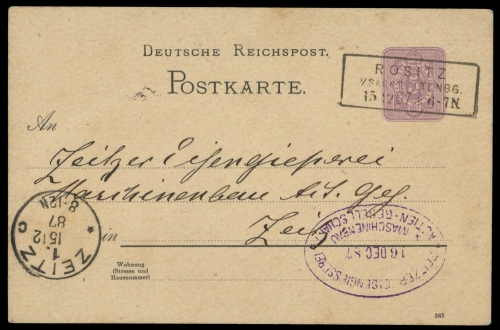 DEUTSCHE REICHSPOST.
POSTKARTE.
ROSITZ
15 12 87 6-7N
An
Zeitzer Eisengieszerei
Maschinenbau Act. Ges.
in Zeitz
Wohnung
(Strasse und
Hausnummer)
ZEITZ
1.
15 12
87
8-12N
c
ZEITZER EISENGIESSEREI
MASCHINENBAU
ACTIEN-GESELLSCHAFT
16 DEC 87
387